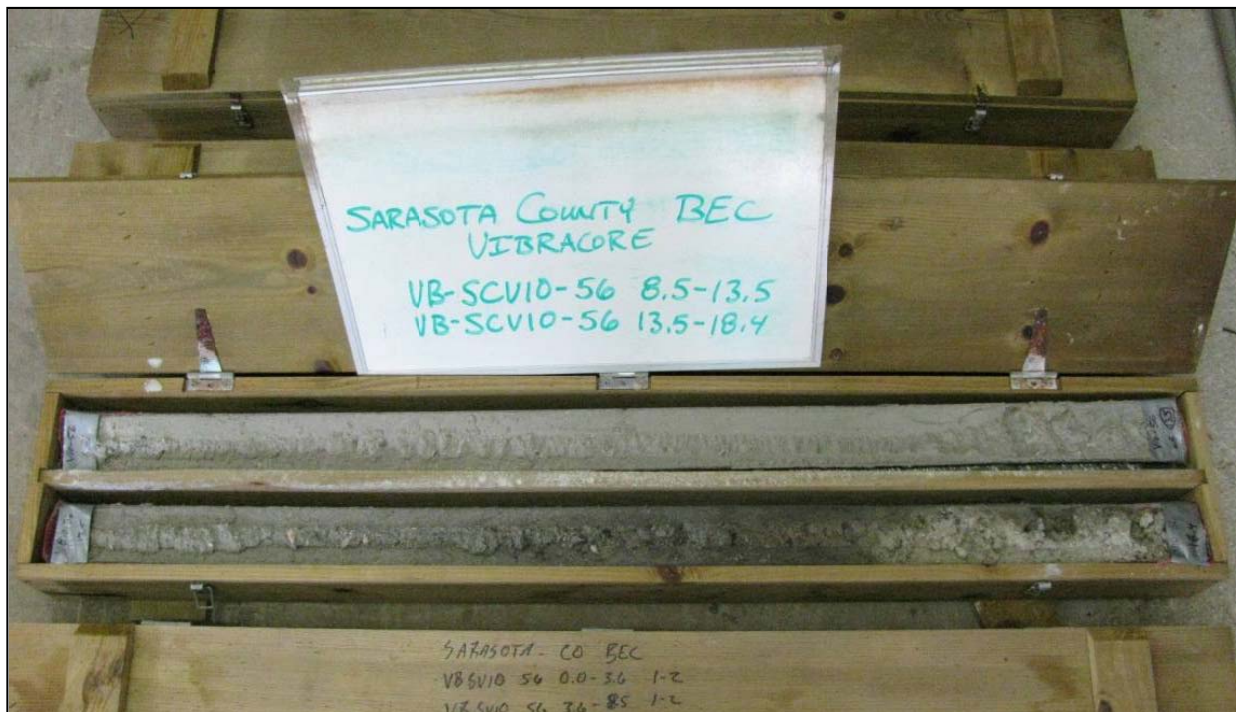 SARASOTA COUNTY BEC
VIBRACORE
VB-SCV10-56 8.5-13.5
VB-SCV10-56 13.5-18.4
SARASOTA CO BEC
VBSV10 56 0.0-3.6 1-2
VBSV10 56 3.6-8.5 1-2